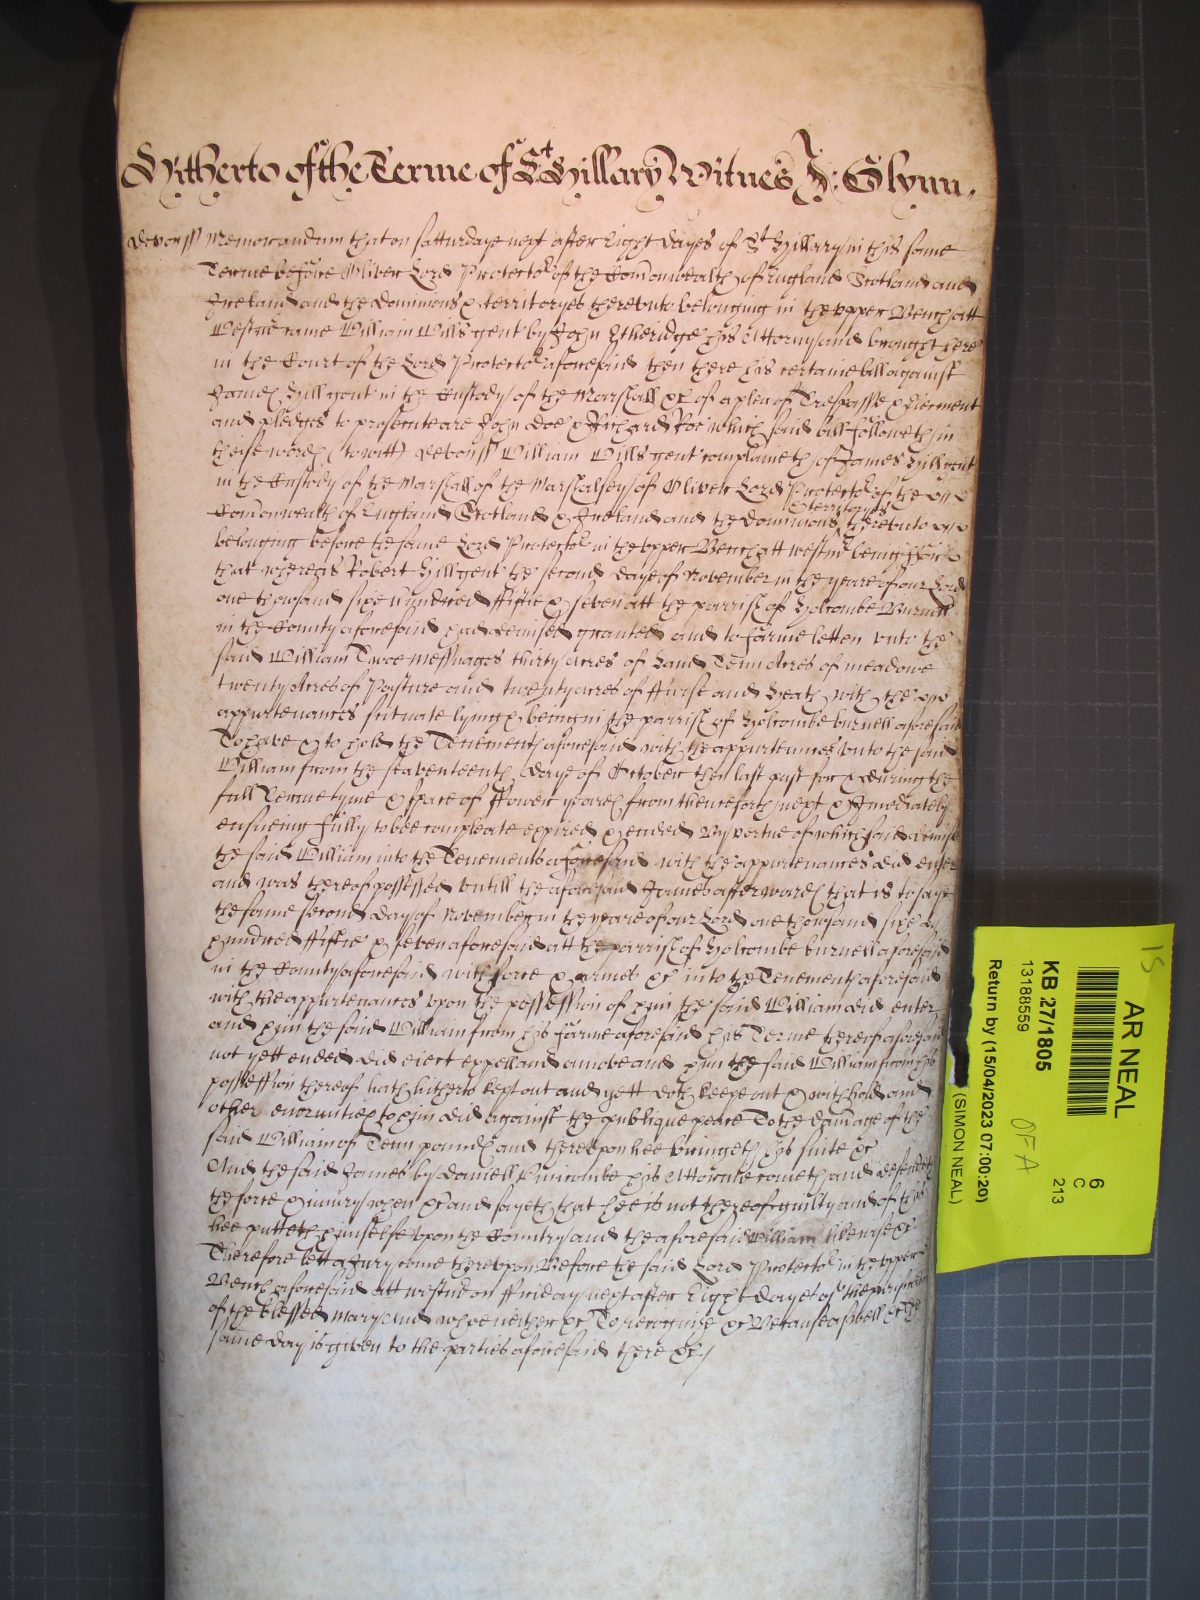 Hitherto of the Terme of St Hillary Witnes J: Glynn.
Devonss Memorandum that on Satturdaye next after Eight dayes of St Hillary in this same
Terme before Oliver Lord Protector of the Comonwealth of England Scotland and
Ireland and the Dominions & territoryes thereunto belonging in the upper Bench att
Westmr came William Wills gent by John Etheridge his Attorny and brought here
in the Court of the Lord Protector aforesaid then there his certaine bill against
James Hill gent in the Custody of the Marshall &c of a plea of Trespasse & Eiectment
and pledges to prosecute are John Doe & Richard Roe which said bill followeth in
theise words (to witt) Devonss William Wills gent complaineth of James Hill gent
in the Custody of the Marshall of the Marshalsey of Oliver Lord Protector of the
Comonwealth of England Scotland & Ireland and the Dominions & territoryes thereunto
belonging before the same Lord Protector in the upper Bench att Westmr being For
that whereas Robert Hill gent the second daye of November in the yeare of our Lord
one thousand sixe hundred fiftie & seven att the parrish of Holcombe Burnell
in the County aforesaid had demised graunted and to farme letten unto the
said William Twoe Messuages thirty Acres of Land Tenn Acres of meadowe
twenty Acres of Pasture and twenty acres of ffurse and Heath with the
appurtenances scituate lying & being in the parrish of Holcombe burnell aforesaid
To have & to hold the Tenements aforesaid with the appurtennces unto the said
William from the seaventeenth daye of October then last past for & during the
full Terme tyme & space of ffower yeares from thenceforth next & Imediately
ensueing fully to bee compleate expired & ended By vertue of which said demise
the said William into the Tenements aforesaid with the appurtenances did enter
and was thereof possessed untill the aforesaid James afterwards that is to saye
the same second day of November in the yeare of our Lord one thousand sixe
hundred fiftie & seven aforesaid att the parrish of Holcombe burnell aforesaid
in the County aforesaid with force & armes &c into the Tenements aforesaid
with the appurtenances upon the possession of him the said William did enter
and him the said William from his farme aforesaid his Terme thereof aforesaid
not yett ended did eiect expell and amove and him the said William from his
possession thereof hath hitherto kept out and yett doth keepe out & withhold and
other enormities to him did against the publique peace To the damage of the
said William of Tenn pounds and thereupon hee bringeth his suite &c
And the said James by Daniell his Attorney cometh and defendeth
the force & iniury when &c and sayeth that hee is not thereof guilty and of this
hee putteth himselfe upon the Country and the aforesaid William likewise &c
Therefore lett a Jury come thereupon Before the said Lord Protector in the upper
Bench aforesaid att Westmr on ffriday next after Eight dayes of the purification
of the blessed Mary And who neither &c To recognize &c Because aswell &c The
same day is given to the parties aforesaid there &c /
AR NEAL
KB 27/1805
13188559
Return by (15/04/2023 07:00:20)
(SIMON NEAL)
6
C
213
OFA
15